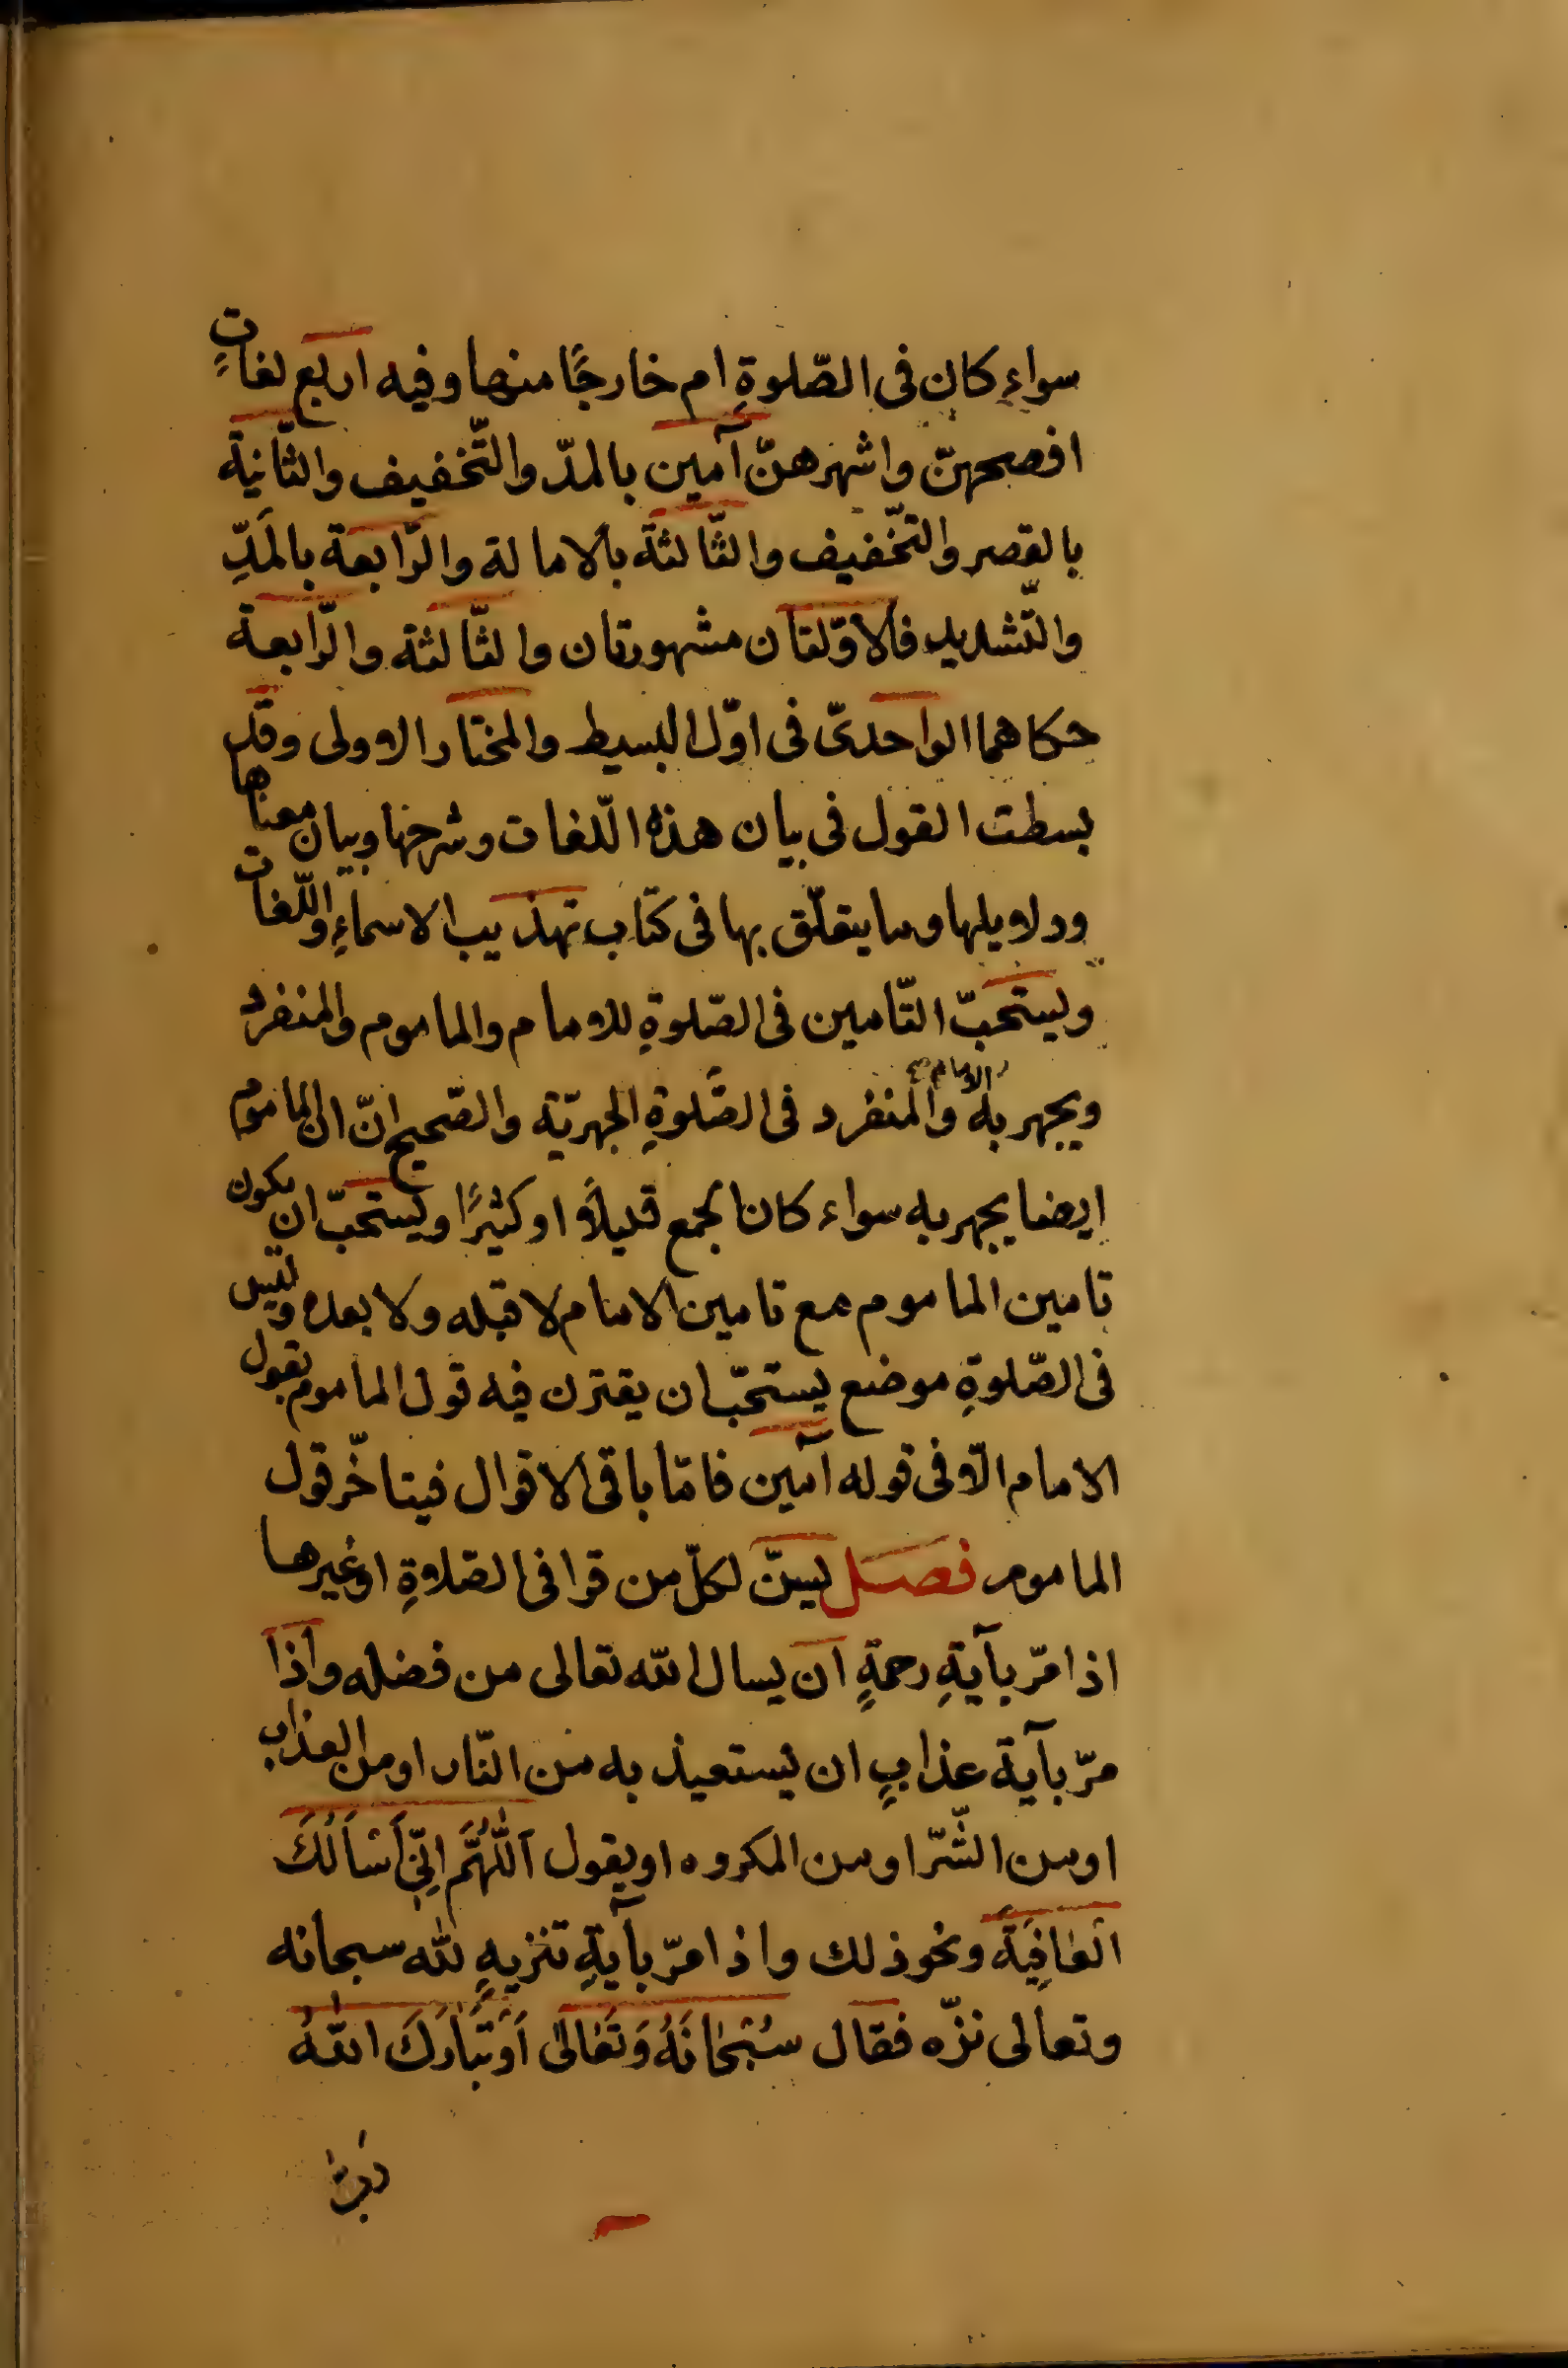 سواءٍ كان فى الصّلوةِ ام خارجًا منها وفيه اربع لغاتٍ
افصحهنّ واشهرهنّ آمين بالمدّ والتّخفيف والثّانية
بالقصر والتّخفيف والثّالثة بالامالة والرّابعة بالمَدِّ
والتّشديد فالاوّلتان مشهورتان والثّالثة والرّابعة
حكاهما الواحدىّ فى اوّل البسيط والمختار الاولى وقد
بسطت القول فى بيان هذه اللّغات وشرحها وبيان معناها
ودلايلها وما يتعلّق بها فى كتاب تهذيب الاسماءِ واللّغات
ويستحبّ التّامين فى الصّلوةِ للامام والماموم والمنفرد
ويجهر به الامام والمنفرد فى الصَّلوةِ الجهريّة والصّحيح انّ الماموم
ايضا يجهر به سواء كان الجمع قليلاً او كثيرًا ويستحبّ ان يكون
تامين الماموم مع تامين الامام لا قبله ولا بعده وليس
فى الصّلوةِ موضع يستحبّ ان يقترن فيه قول الماموم بقول
الامام الّا فى قوله آمين فامّا باقى الاقوال فيتاخّر قول
الماموم فصل يسنّ لكلّ من قرا فى الصّلاوةِ او غيرها
اذا مرّ بآيةِ رحمةٍ ان يسال الله تعالى من فضله واذا
مرّ بآية عذابٍ ان يستعيذ به من النّار او من العذاب
او من الشّرّ او من المكروه او يقول اَللّٰهُمَّ اِنِّى اَسْاَلُكَ
العَافِيَةَ ونحو ذلك واذا مرّ بآيةِ تنزيهٍ لله سبحانه
وتعالى نزّه فقال سُبْحَانَهُ وَتَعَالىٰ اَوْ تَبَارَكَ اللّٰهُ